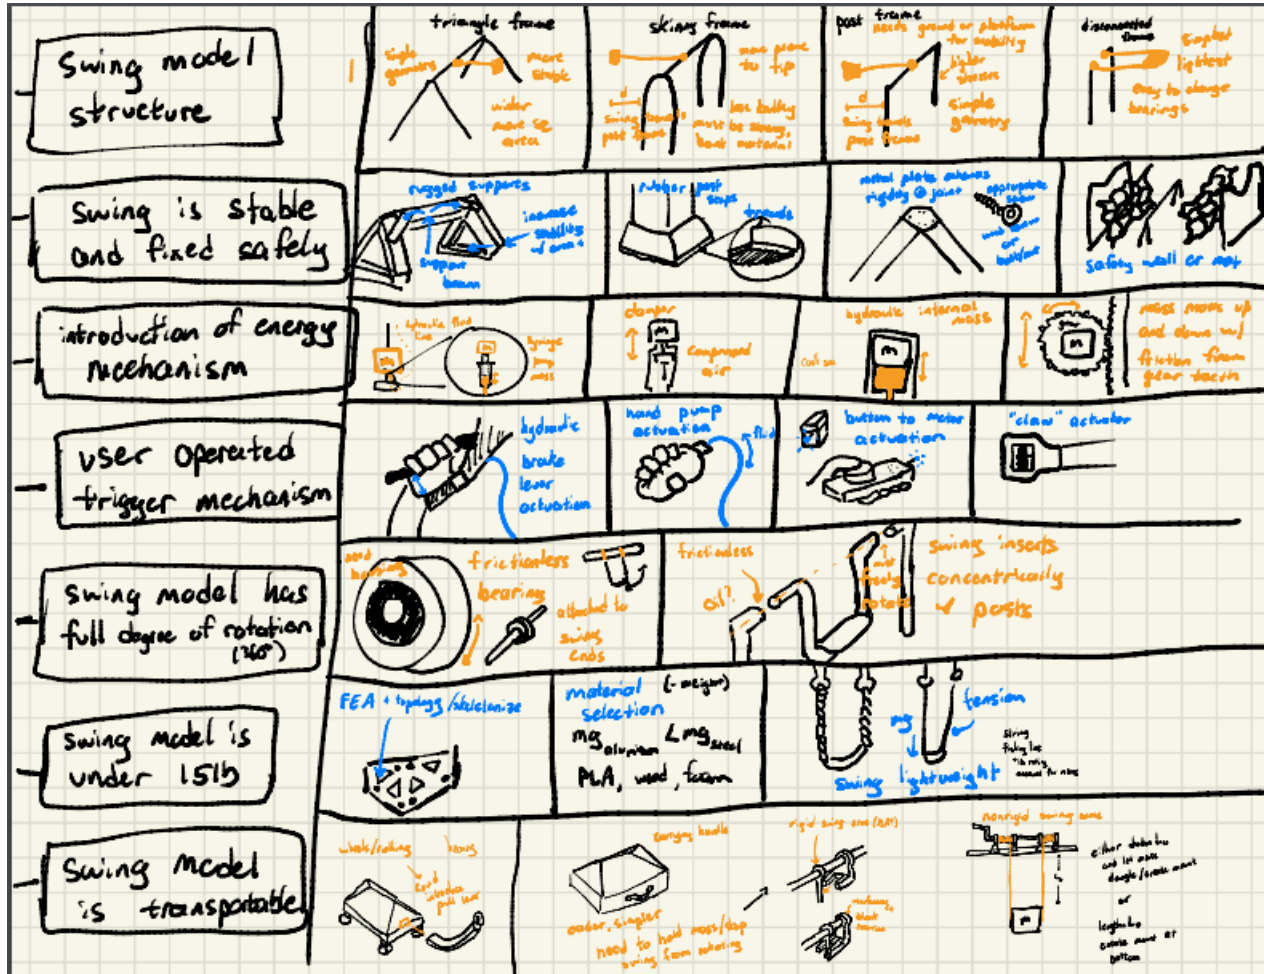 Swing model
structure
triangle frame
single
geometry
more
stable
wider
more sq
area
skinny frame
more prone
to tip
d
swing travels
past frame
less bulky
must be strong,
bent material
post frame
needs ground or platform
for mobility
higher
stresses
simple
geometry
d
swing travels
past frame
disconnected
frame
simplest
lightest
easy to change
bearings
Swing is stable
and fixed safely
rugged supports
increase
stability
w/ area
support
beam
rubber post
caps
treads
metal plates enhances
rigidity @ joint
appropriate
safety wall or net
introduction of energy
mechanism
hydraulic fluid
line
syringe
pump
mass
m
damper
m
compressed
air
hydraulic internal
mass
m
gear
m
mass moves up
and down w/
friction from
gear teeth
user operated
trigger mechanism
hydraulic
brake
lever
actuation
hand pump
actuation
fluid
button to motor
actuation
"claw" actuator
swing model has
full degree of rotation
(360°)
need
housing
frictionless
bearing
attached to
swing
ends
frictionless
oil?
must
freely
rotate
swing inserts
concentrically
w/ posts
swing model is
under 15lb
FEA + topology/skeletonize
material (- weight)
selection
mg aluminum < mg steel
PLA, wood, foam
mg
tension
swing lightweight
string
fishing line
swing model
is transportable
wheels/rolling
heavy
could
introduce
pull lever
carrying handle
easier, simpler
need to hold mass/stop
swing from rotating
rigid swing arms
nonrigid swing arms
m
either detach
and let mass
dangle/create mount
or
lengthen
create mount at
bottom